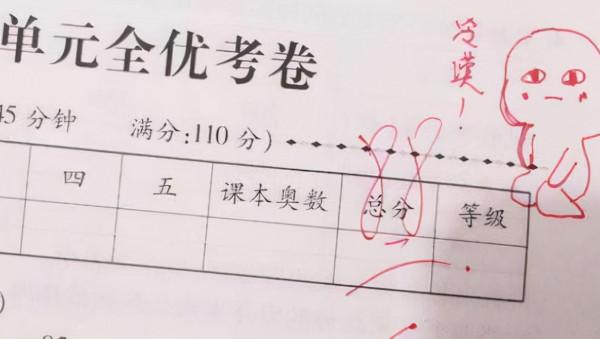 单元全优考卷
45分钟 满分:110分)
四 五 课本奥数 总分 等级
88
冷漠!